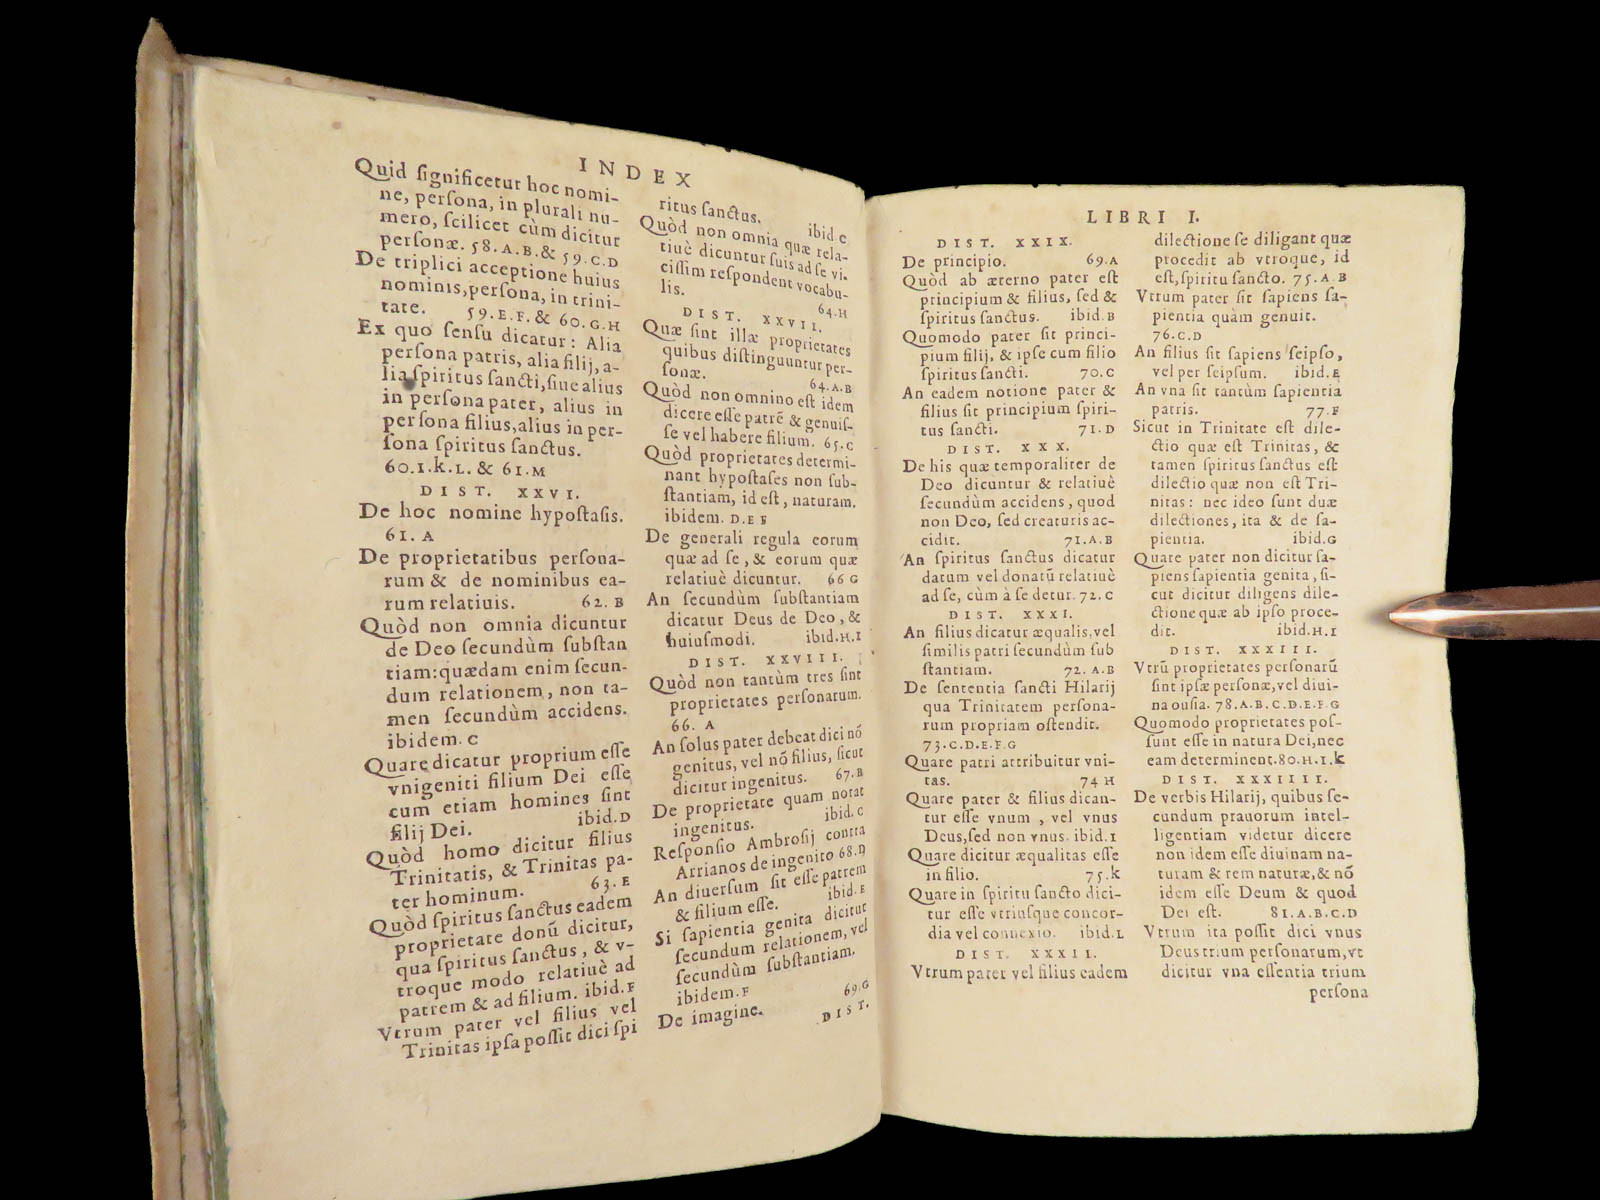 INDEX
Quid ſignificetur hoc nomi-
ne, perſona, in plurali nu-
mero, ſcilicet cùm dicitur
perſonæ. 58.A.B.& 59.C.D
De triplici acceptione huius
nominis,perſona, in trini-
tate. 59.E.F.& 60.G.H
Ex quo ſenſu dicatur: Alia
perſona patris, alia filij, a-
lia ſpiritus ſancti,ſiue alius
in perſona pater, alius in
perſona filius,alius in per-
ſona ſpiritus ſanctus.
60.I.K.L. & 61.M
DIST. XXVI.
De hoc nomine hypoſtaſis.
61. A
De proprietatibus perſona-
rum & de nominibus ea-
rum relatiuis. 62. B
Quòd non omnia dicuntur
de Deo ſecundùm ſubſtan
tiam:quædam enim ſecun-
dum relationem, non ta-
men ſecundùm accidens.
ibidem. C
Quare dicatur proprium eſſe
vnigeniti filium Dei eſſe
cum etiam homines ſint
filij Dei. ibid.D
Quòd homo dicitur filius
Trinitatis, & Trinitas pa-
ter hominum. 63. E
Quòd ſpiritus ſanctus eadem
proprietate donũ dicitur,
qua ſpiritus ſanctus, & v-
troque modo relatiuè ad
patrem & ad filium. ibid.F
Vtrum pater vel filius vel
Trinitas ipſa poſſit dici ſpi
ritus ſanctus. ibid.C
Quòd non omnia quæ rela-
tiuè dicuntur ſuis ad ſe vi-
ciſſim reſpondent vocabu-
lis. 64.H
DIST. XXVII.
Quæ ſint illæ proprietates
quibus diſtinguuntur per-
ſonæ. 64.A.B
Quòd non omnino eſt idem
dicere eſſe patrẽ & genuiſ-
ſe vel habere filium. 65.C
Quòd proprietates determi-
nant hypoſtaſes non ſub-
ſtantiam, id eſt, naturam.
ibidem. D.E F
De generali regula eorum
quæ ad ſe, & eorum quæ
relatiuè dicuntur. 66 G
An ſecundùm ſubſtantiam
dicatur Deus de Deo, &
huiuſmodi. ibid.H.I
DIST. XXVIII.
Quòd non tantùm tres ſint
proprietates perſonarum.
66. A
An ſolus pater debeat dici nõ
genitus, vel nõ filius, ſicut
dicitur ingenitus. 67.B
De proprietate quam notat
ingenitus. ibid.C
Reſponſio Ambroſij contra
Arrianos de ingenito 68.D
An diuerſum ſit eſſe patrem
& filium eſſe. ibid.E
Si ſapientia genita dicitur
ſecundum relationem, vel
ſecundùm ſubſtantiam.
ibidem.F
De imagine. 69.G
DIST.
LIBRI I.
DIST. XXIX.
De principio. 69.A
Quòd ab æterno pater eſt
principium & filius, ſed &
ſpiritus ſanctus. ibid.B
Quomodo pater ſit princi-
pium filij, & ipſe cum filio
ſpiritus ſancti. 70.C
An eadem notione pater &
filius ſit principium ſpiri-
tus ſancti. 71.D
DIST. XXX.
De his quæ temporaliter de
Deo dicuntur & relatiuè
ſecundùm accidens, quod
non Deo, ſed creaturis ac-
cidit. 71.A.B
An ſpiritus ſanctus dicatur
datum vel donatũ relatiuè
ad ſe, cùm à ſe detur. 72.C
DIST. XXXI.
An filius dicatur æqualis,vel
ſimilis patri ſecundùm ſub
ſtantiam. 72. A.B
De ſententia ſancti Hilarij
qua Trinitatem perſona-
rum propriam oſtendit.
73.C.D.E.F.G
Quare patri attribuitur vni-
tas. 74 H
Quare pater & filius dican-
tur eſſe vnum, vel vnus
Deus,ſed non vnus. ibid.I
Quare dicitur æqualitas eſſe
in filio. 75.K
Quare in ſpiritu ſancto dici-
tur eſſe vtriuſque concor-
dia vel connexio. ibid.L
DIST. XXXII.
Vtrum pater vel filius eadem
dilectione ſe diligant quæ
procedit ab vtroque, id
eſt,ſpiritu ſancto. 75.A.B
Vtrum pater ſit ſapiens ſa-
pientia quàm genuit.
76.C.D
An filius ſit ſapiens ſeipſo,
vel per ſeipſum. ibid.E
An vna ſit tantùm ſapientia
patris. 77.F
Sicut in Trinitate eſt dile-
ctio quæ eſt Trinitas, &
tamen ſpiritus ſanctus eſt
dilectio quæ non eſt Tri-
nitas: nec ideo ſunt duæ
dilectiones, ita & de ſa-
pientia. ibid.G
Quare pater non dicitur ſa-
piens ſapientia genita, ſi-
cut dicitur diligens dile-
ctione quæ ab ipſo proce-
dit. ibid.H.I
DIST. XXXIII.
Vtrũ proprietates perſonarũ
ſint ipſæ perſonæ,vel diui-
na ouſia. 78.A.B.C.D.E.F.G
Quomodo proprietates poſ-
ſunt eſſe in natura Dei,nec
eam determinent.80.H.I.K
DIST. XXXIIII.
De verbis Hilarij, quibus ſe-
cundum prauorum intel-
ligentiam videtur dicere
non idem eſſe diuinam na-
turam & rem naturæ,& nõ
idem eſſe Deum & quod
Dei eſt. 81.A.B.C.D
Vtrum ita poſſit dici vnus
Deus trium perſonarum,vt
dicitur vna eſſentia trium
perſona